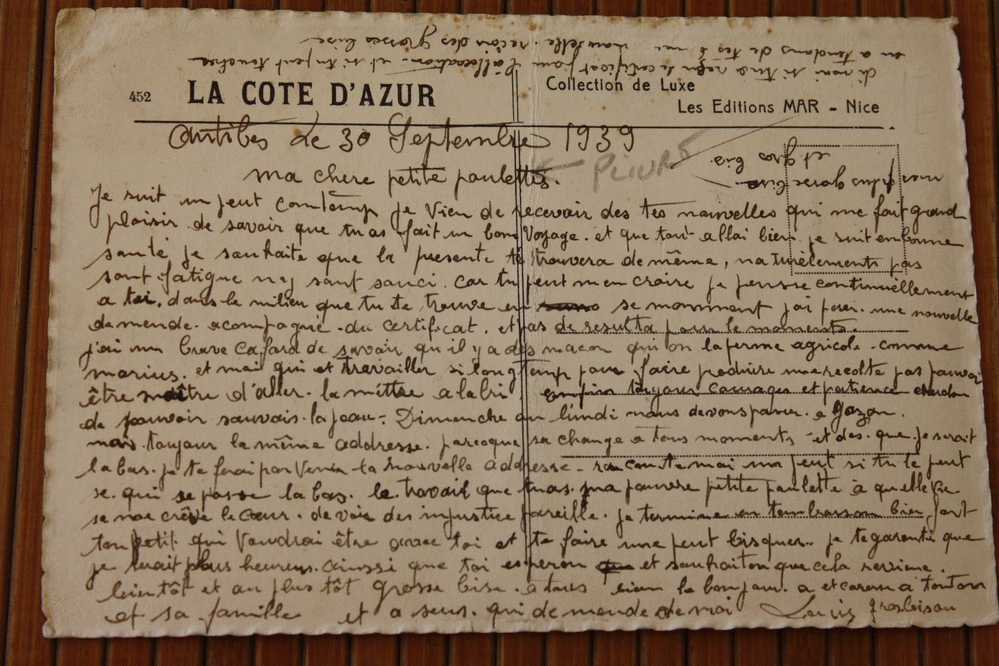 di moi si tu a reçu le certificat pour l'allocation. et si tu peut toucher
on a tendons de tes nouvelle. reçoin des grosses bise
452 LA COTE D'AZUR
Collection de Luxe
Les Editions MAR - Nice
Antibes le 30 Septembre 1939
ma chere petite paulettes.
PLIURS
mes plus grosse bise
et gros bis.
Je suit un peut comtemp je vien de recevoir des tes nouvelles qui me fait grand
plaisir de savoir que tu as fait un bon voyage. et que tout allai bien. je suit en bonne
santé je souhaite que la presente te trouvera de même, naturelements pas
sant fatigue ny sant souci. car tu peut m'en croire je pensse continuellement
a toi. dans le milien que tu te trouve en se momment j'ai fait une nouvelle
demende. acompagnie. du certificat. et pas de resulta pour le moments.
j'ai un brave cafard de savoir qu'il y a des macon qui on la ferme agricole. comme
marius. et mai qui et travailler si longtemp pour faire produire une recolte pas pouvoir
être maître d'aler. la mettre a labri enfin toujour courages et patience
de pouvoir sauvais. la peau. Dimenche ou l'undi nous devons passer. a Gazan.
mais toujour la même addresse. parceque sa change a tous moments et des. que je serait
la bas. je te ferai parvenir la nouvelle addresse. racconte mai un peut si tu le peut
se. qui se passe la bas. le travail que tu as. ma pauvre petite paulette a quelle vie
se me crêve le cœur. de voir des injustice pareille. je termine en tembrassan bien fort
ton petit qui voudrai être avec toi et te faire une peut bisques. je te garenti que
je serait plus heureux. ainssi que toi esperon et souhaiton que cela revienne.
bientôt et au plus tôt grosse bise. a tous bien le bonjour. a et caron a tonton
et sa famille et a seus. qui demende de moi Louis grosbisou